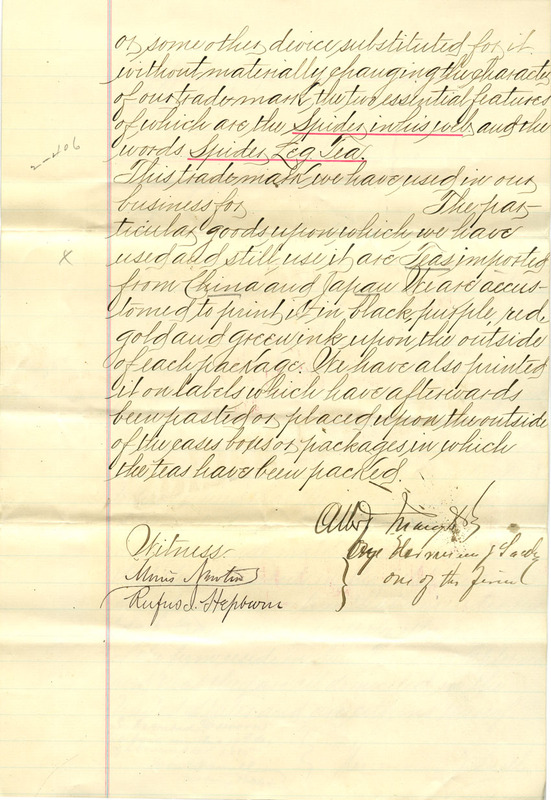 or some other device substituted for it
without materially changing the character
of our trade mark the two essential features
of which are the Spider in his web and the
words Spider Leg Tea.
This trade mark we have used in our
business for The par-
ticular goods upon which we have
used and still use it are Teas imported
from China and Japan We are accus-
tomed to print it in black, purple, red,
gold and green ink upon the outside
of each package. We have also printed
it on labels which have afterwards
been pasted or placed upon the outside
of the cases boxes or packages in which
the teas have been packed.
Albert
Witness.
one of the firm
Morris Newton
Rufus Hepburn